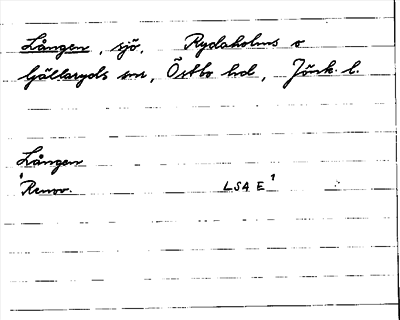 Lången, sjö, Rydaholms o
Gällaryds snr, Östbo hd, Jönk. l.
Lången
Renov. LSA E 1